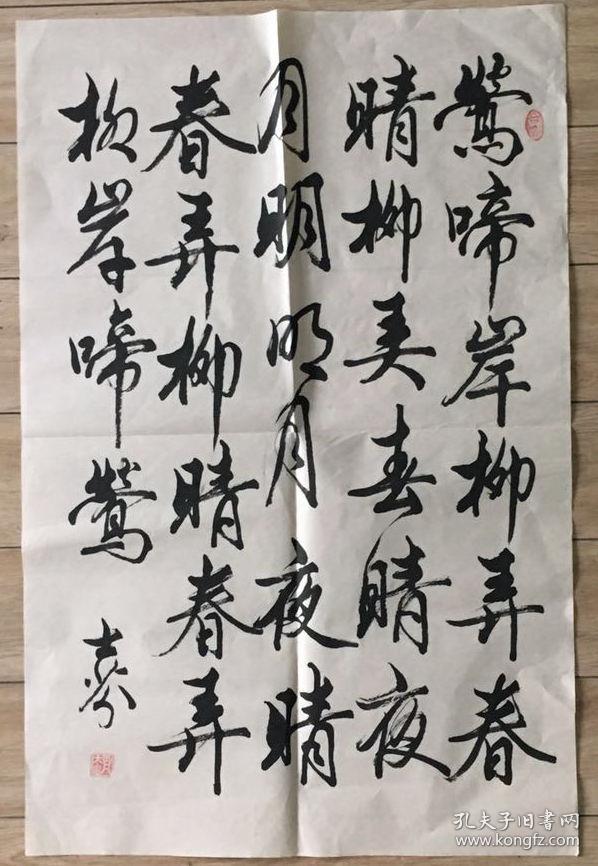 鶯啼岸柳弄春
晴柳弄春晴夜
月明明月夜晴
春弄柳晴春弄
柳岸啼鶯
士
孔夫子旧书网
www.kongfz.com